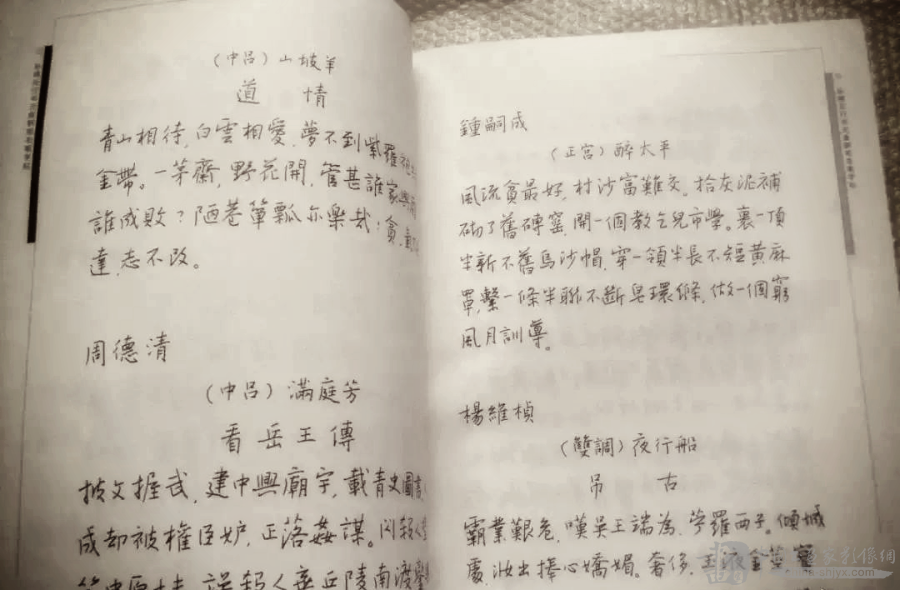 （中呂）山坡羊
道 情
青山相待，白雲相愛，夢不到紫羅袍
金帶。一茅齋，野花開，管甚誰家興
誰成敗？陋巷簞瓢亦樂哉！貧，氣
達，志不改。
周德清
（中呂）滿庭芳
看岳王傳
披文握武，建中興廟宇，載青史圖書
成却被權臣妒，正落姦謀。閃殺人
鍾嗣成
（正宮）醉太平
風流貧最好，村沙富難交。拾灰泥補
砌了舊磚窰，開一個教乞兒市學。裹一頂
半新不舊烏沙帽，穿一領半長不短黃麻
罩，繫一條半聯不斷皂環絛，做一個窮
風月訓導。
楊維楨
（雙調）夜行船
吊 古
霸業艱危，嘆吳王端為，苧羅西子。傾城
處，妝出捧心嬌媚。奢侈，玉液金莖